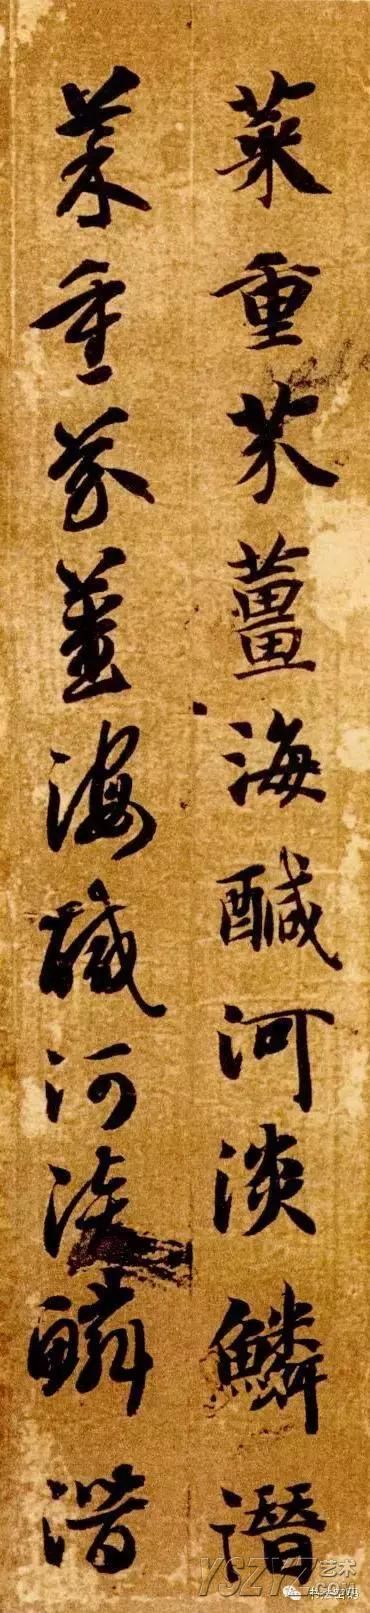 菜重芥薑海醎河淡鱗潛
菜重芥薑海醎河淡鱗潛
艺术
书法密码